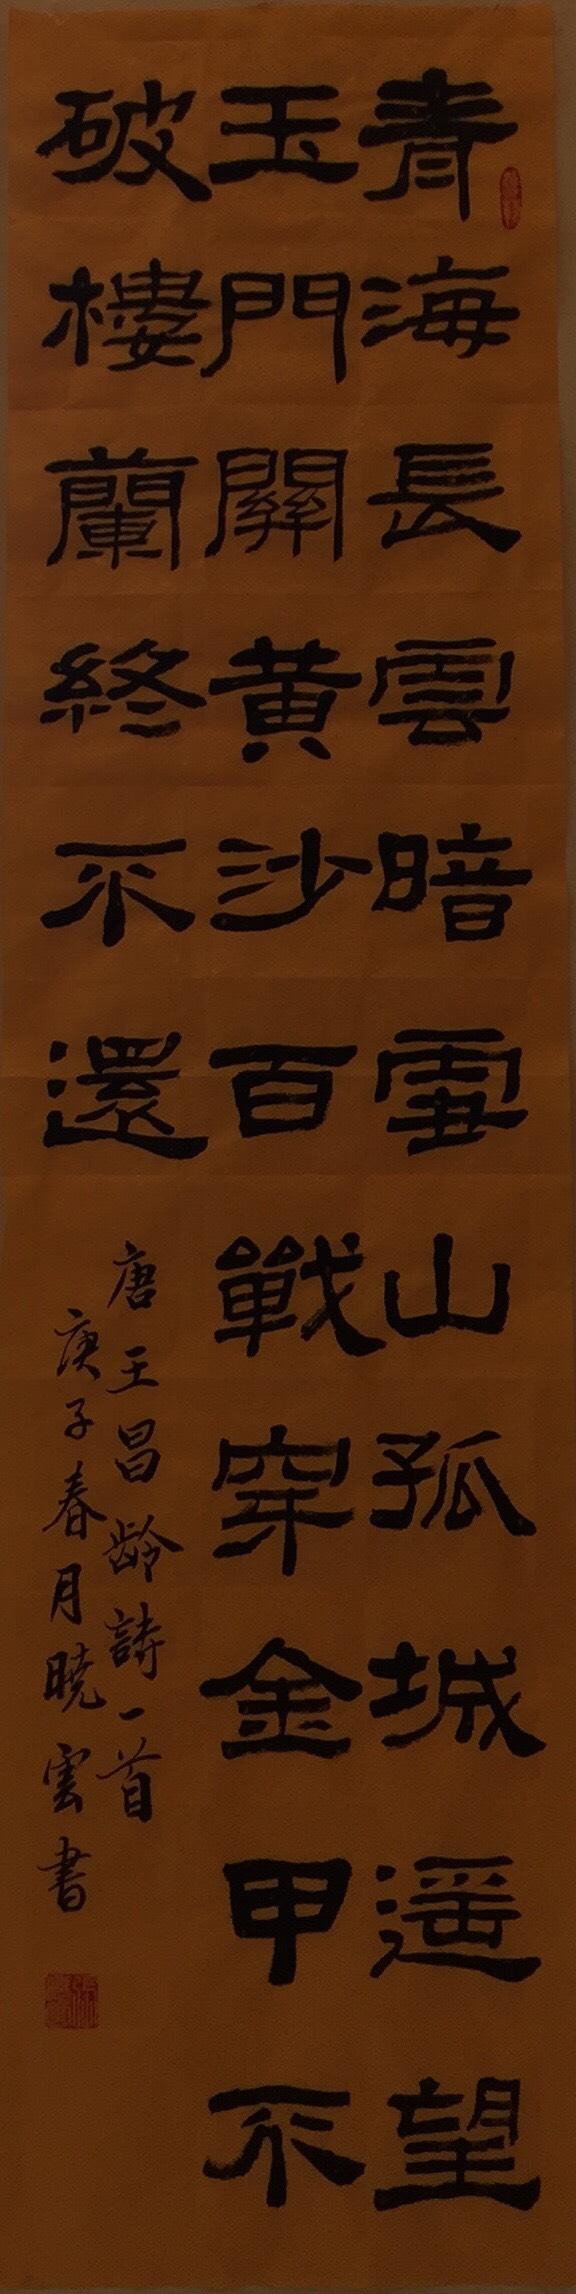 青海長雲暗雪山孤城遥望
玉門關黄沙百戰穿金甲不
破樓蘭終不還
唐王昌齡詩一首
庚子春月曉雲書